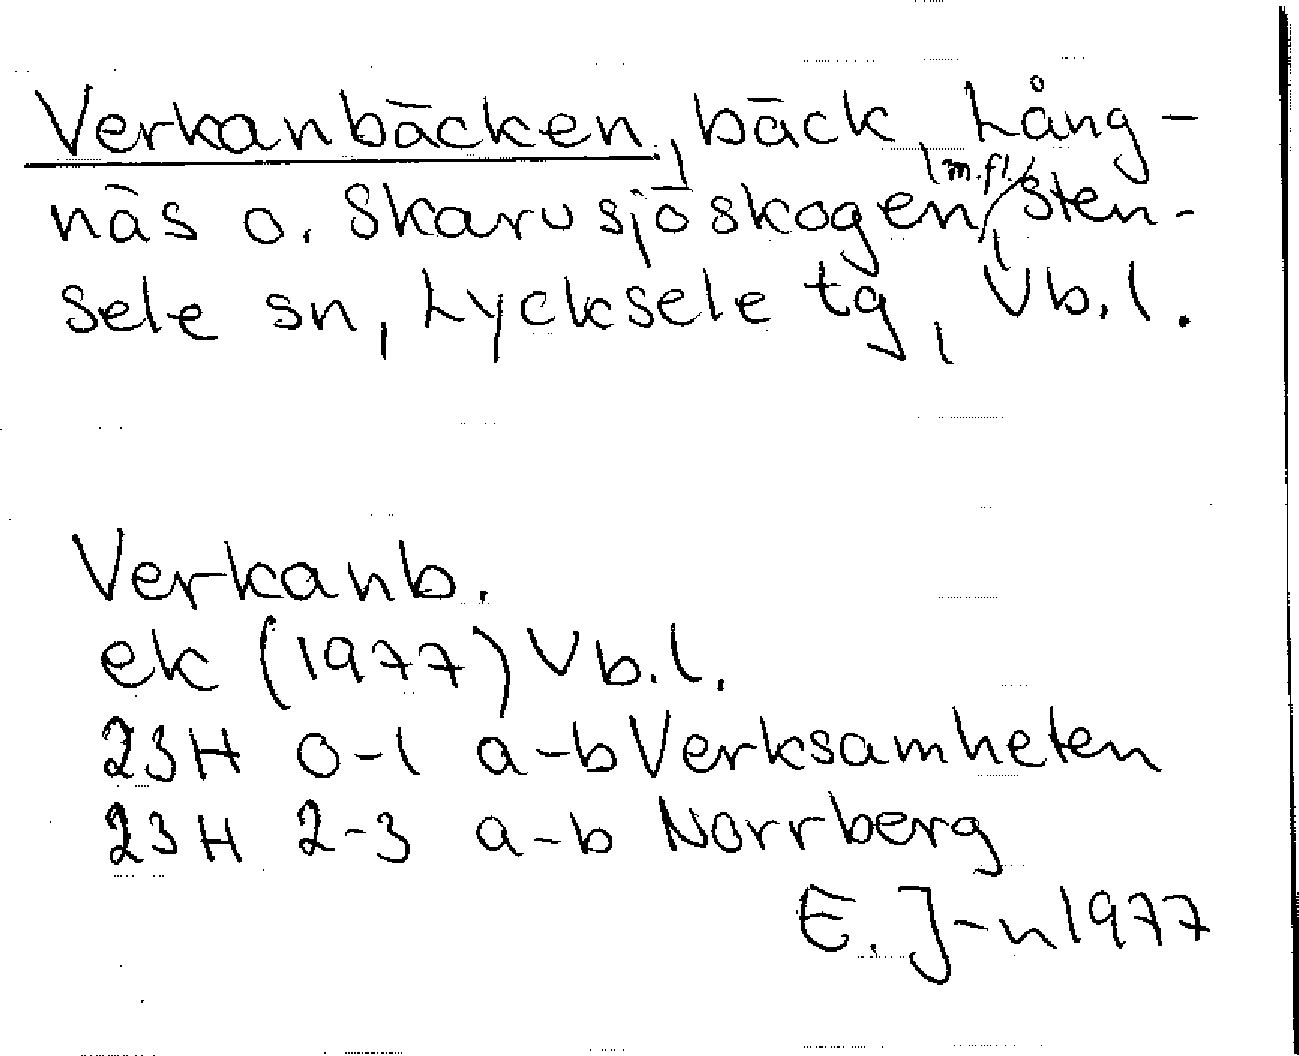 Verkanbäcken, bäck Lång-
näs o. Skarvsjöskogen, m.fl. Sten-
sele sn, Lycksele tg, Vb.l.
Verkanb.
ek (1977) Vb.l.
23H 0-1 a-b Verksamheten
23H 2-3 a-b Norrberg
E. J-n 1977